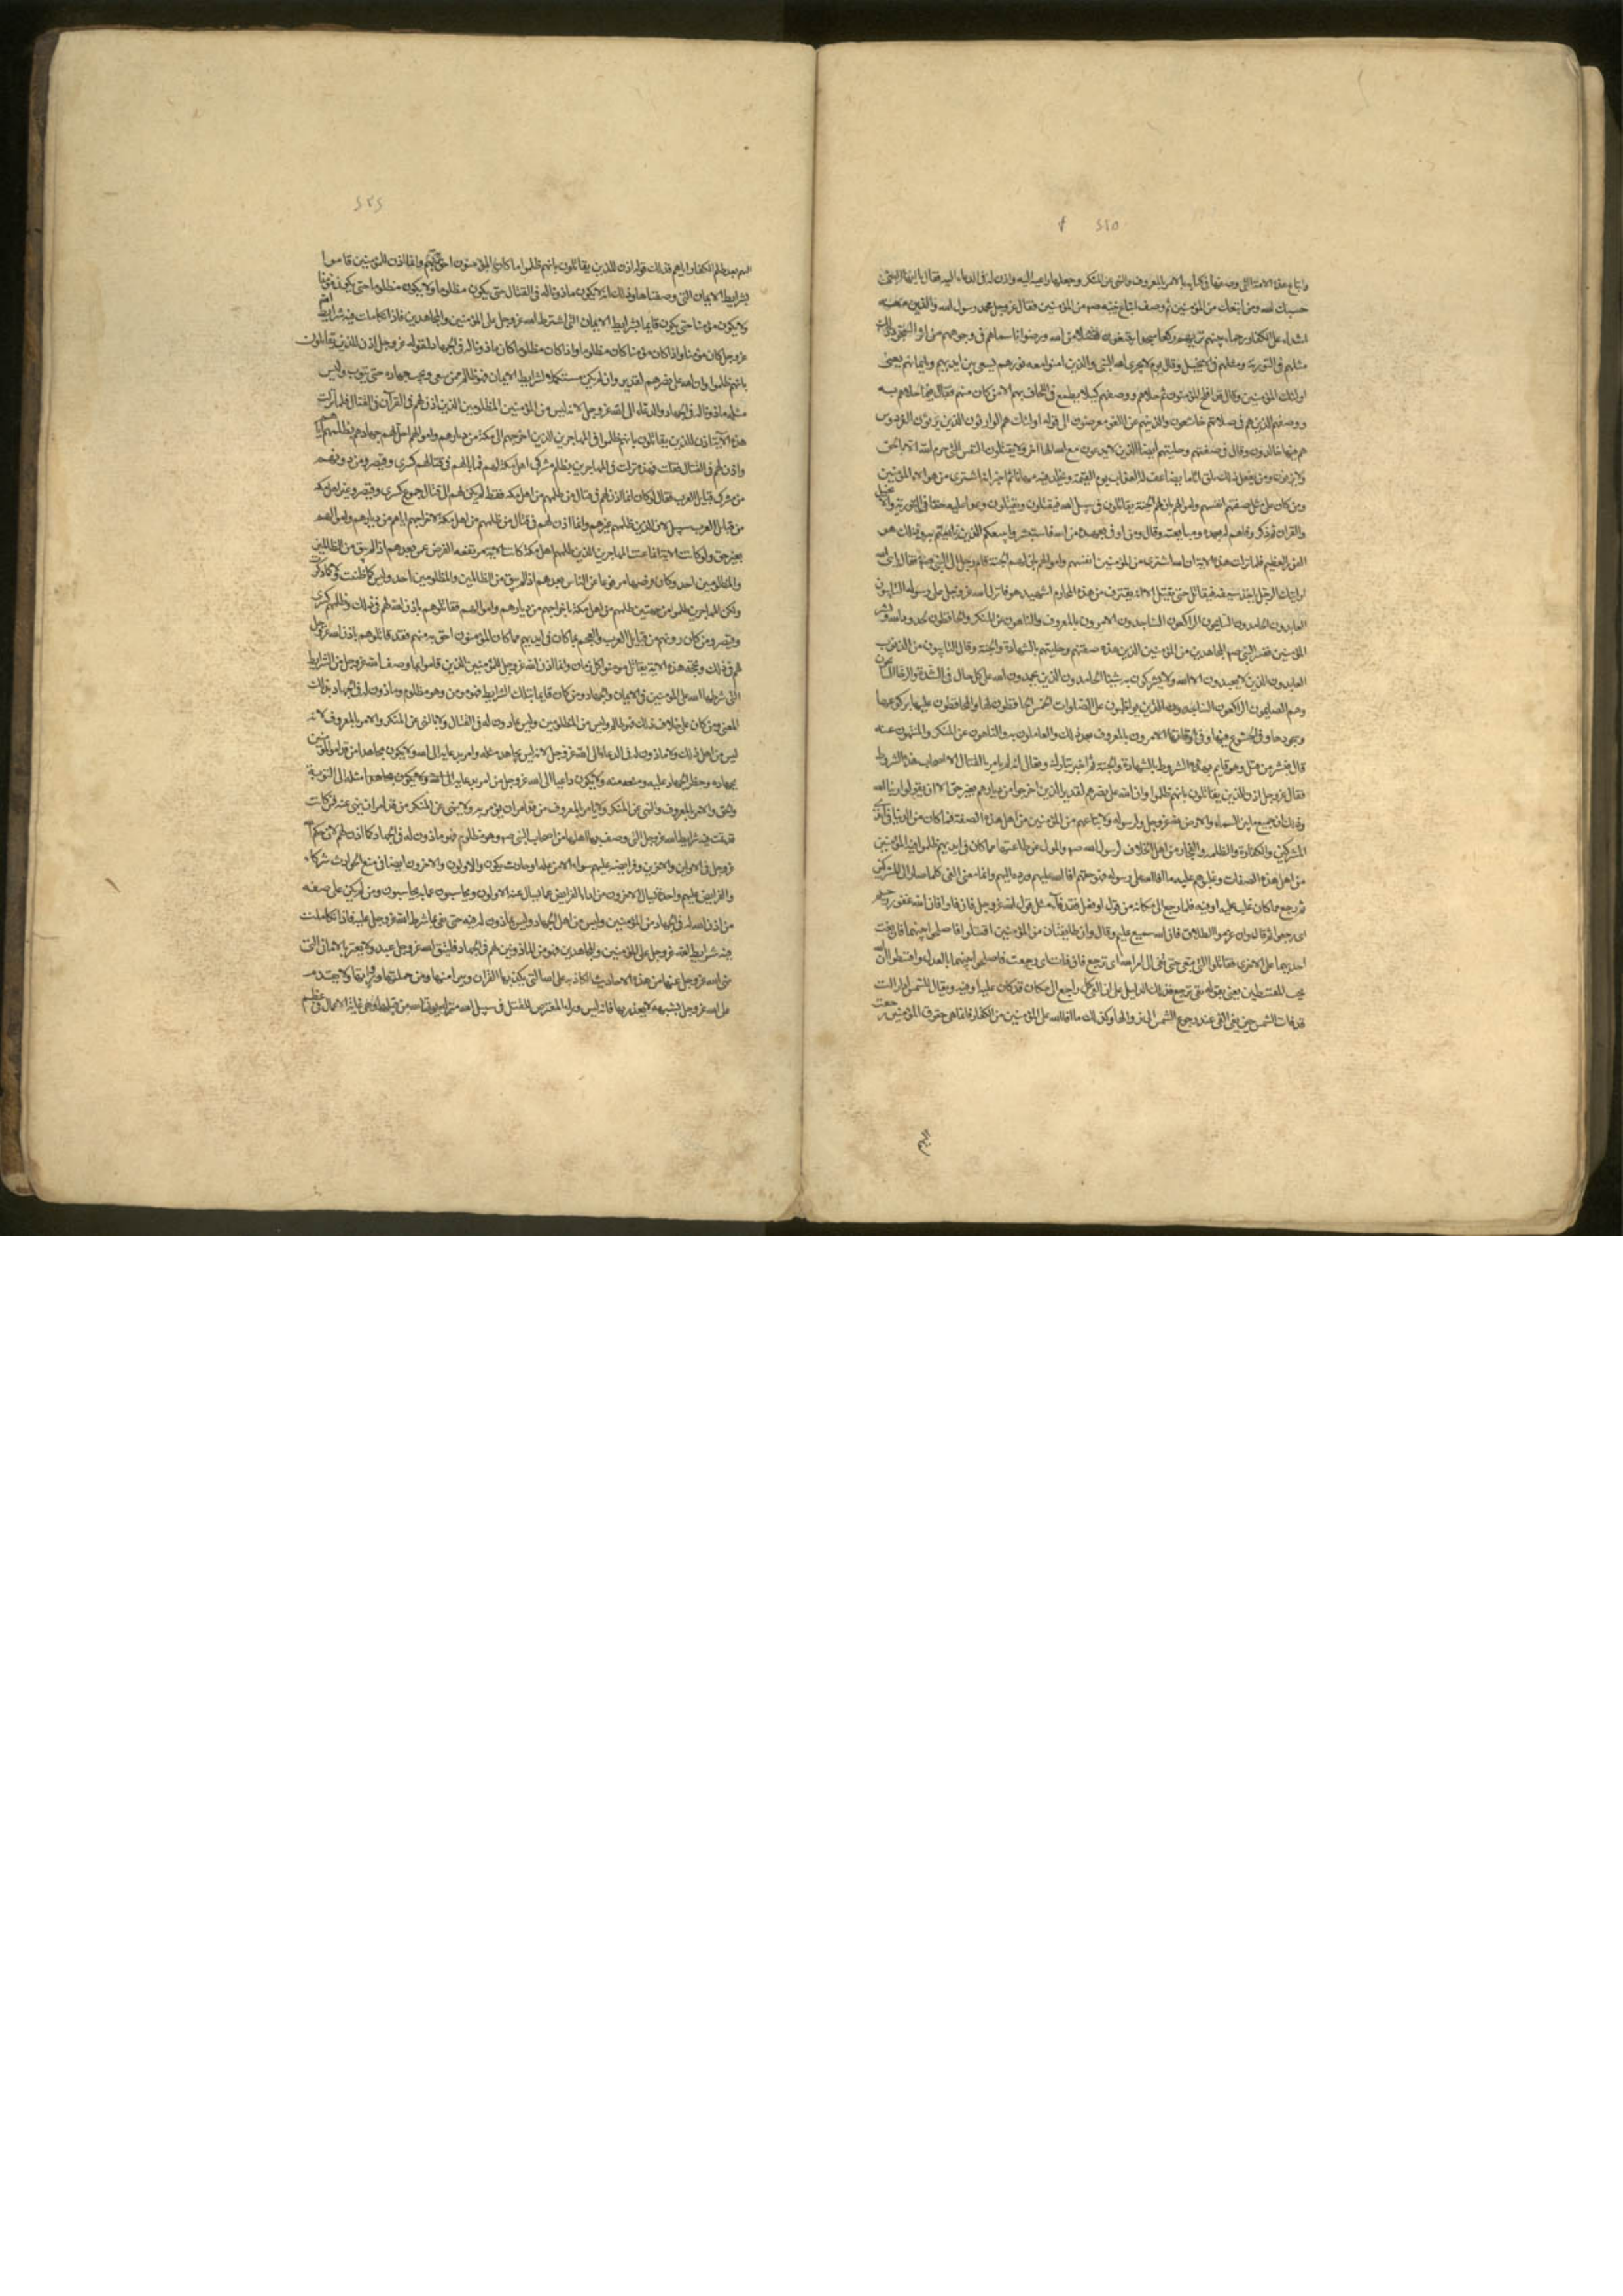 واتباع هذه الامة التي وصفها في كتابه بالامر بالمعروف والنهي عن المنكر وجعلها داعية اليه واذن له في الدعاء اليه فقال يا ايها النبي
حسبك الله ومن اتبعك من المؤمنين ثم وصف اتباع نبيه ص من المؤمنين فقال عز وجل محمد رسول الله والذين معه
اشداء على الكفار رحماء بينهم تراهم ركعا سجدا يبتغون فضلا من الله ورضوانا سيماهم في وجوههم من اثر السجود ذلك
مثلهم في التورية ومثلهم في الانجيل وقال يوم لا يخزى الله النبي والذين امنوا معه نورهم يسعى بين ايديهم وبايمانهم يعني
اولئك المؤمنين وقال قد افلح المؤمنون ثم حلاهم ووصفهم كيلا يطمع في اللحاق بهم الا من كان منهم فقال فيما حلاهم به
ووصفهم الذين هم في صلاتهم خاشعون والذين هم عن اللغو معرضون الى قوله اولئك هم الوارثون الذين يرثون الفردوس
هم فيها خالدون وقال في صفتهم وحليتهم ايضا الذين لا يدعون مع الله الها اخر ولا يقتلون النفس التي حرم الله الا بالحق
ولا يزنون ومن يفعل ذلك يلق اثاما يضاعف له العذاب يوم القيمة ويخلد فيه مهانا ثم اخبر انه اشترى من هؤلاء المؤمنين
ومن كان على مثل صفتهم انفسهم واموالهم بان لهم الجنة يقاتلون في سبيل الله فيقتلون ويقتلون وعدا عليه حقا في التورية والانجيل
والقران ثم ذكر وفاءهم له بعهده ومبايعته وقال ومن اوفى بعهده من الله فاستبشروا ببيعكم الذي بايعتم به وذلك هو
الفوز العظيم فلما نزلت هذه الاية ان الله اشترى من المؤمنين انفسهم واموالهم بان لهم الجنة قام رجل الى النبي ص فقال يا نبي الله
ارايتك الرجل ياخذ سيفه فيقاتل حتى يقتل الا انه يقترف من هذه المحارم اشهيد هو فانزل الله عز وجل على رسوله التائبون
العابدون الحامدون السايحون الراكعون الساجدون الامرون بالمعروف والناهون عن المنكر والحافظون لحدود الله وبشر
المؤمنين ففسر النبي ص المجاهدين من المؤمنين الذين هذه صفتهم وحليتهم بالشهادة والجنة وقال التايبون من الذنوب
العابدون الذين لا يعبدون الا الله ولا يشركون به شيئا الحامدون الذين يحمدون الله على كل حال في الشدة والرخا السائحون
وهم الصايمون الراكعون الساجدون الذين يواظبون على الصلوات الخمس الحافظون لها والمحافظون عليها بركوعها
وسجودها وفي الخشوع فيها وفي اوقاتها الامرون بالمعروف بعد ذلك والعاملون به والناهون عن المنكر والمنتهون عنه
قال فبشر من قتل وهو قايم بهذه الشروط بالشهادة والجنة ثم اخبر تبارك وتعالى انه لم يامر بالقتال الا اصحاب هذه الشروط
فقال عز وجل اذن للذين يقاتلون بانهم ظلموا وان الله على نصرهم لقدير الذين اخرجوا من ديارهم بغير حق الا ان يقولوا ربنا الله
وذلك ان جميع ما بين السماء والارض لله عز وجل ولرسوله ولاتباعهم من المؤمنين من اهل هذه الصفة فما كان من الدنيا في ايدي
المشركين والكفار والظلمة والفجار من اهل الخلاف لرسول الله ص والمولى عن طاعتهما مما كان في ايديهم ظلموا فيه المؤمنين
من اهل هذه الصفات وغلبوهم عليه مما افاء الله على رسوله فهو حقهم افاء الله عليهم ورده اليهم وانما معنى الفي كلما صار الى المشركين
ثم رجع مما كان غلب عليه او فيه فما رجع الى مكانه من قول او فعل فقد فاء مثل قول الله عز وجل فان فاؤا فان الله غفور رحيم
اي رجعوا ثم قال وان عزموا الطلاق فان الله سميع عليم وقال وان طايفتان من المؤمنين اقتتلوا فاصلحوا بينهما فان بغت
احديهما على الاخرى فقاتلوا التي تبغي حتى تفي الى امر الله اي ترجع فان فاءت اي رجعت فاصلحوا بينهما بالعدل واقسطوا ان الله
يحب المقسطين يعني بقوله تفي ترجع فذلك الدليل على ان الفي كل راجع الى مكان قد كان عليه او فيه ويقال للشمس اذا زالت
قد فاءت الشمس حين يفي الفي عند رجوع الشمس الى زوالها وكذلك ما افاء الله على المؤمنين من الكفار فانما هي حقوق المؤمنين رجعت
اليهم
اليهم بعد ظلم الكفار اياهم فذلك قوله اذن للذين يقاتلون بانهم ظلموا ما كان المؤمنون احق به منهم وانما اذن للمؤمنين الذين قاموا
بشرايط الايمان التي وصفناها وذلك انه لا يكون ماذونا له في القتال حتى يكون مظلوما ولا يكون مظلوما حتى يكون مؤمنا
ولا يكون مؤمنا حتى يكون قايما بشرايط الايمان التي اشترط الله عز وجل على المؤمنين والمجاهدين فاذا تكاملت فيه شرايط الله
عز وجل كان مؤمنا واذا كان مؤمنا كان مظلوما واذا كان مظلوما كان ماذونا له في الجهاد لقوله عز وجل اذن للذين يقاتلون
بانهم ظلموا وان الله على نصرهم لقدير وان لم يكن مستكملا لشرايط الايمان فهو ظالم ممن يبغي ويجب جهاده حتى يتوب وليس
مثله ماذونا له في الجهاد والدعاء الى الله عز وجل لانه ليس من المؤمنين المظلومين الذين اذن لهم في القرآن في القتال فلما نزلت
هذه الآية اذن للذين يقاتلون بانهم ظلموا في المهاجرين الذين اخرجهم اهل مكة من ديارهم واموالهم احل لهم جهادهم بظلمهم اياهم
واذن لهم في القتال فقلت فهذه نزلت في المهاجرين بظلم مشركي اهل مكة لهم فما بالهم في قتالهم كسرى وقيصر ومن دونهم
من مشركي قبايل العرب فقال لو كان انما اذن لهم في قتال من ظلمهم من اهل مكة فقط لم يكن لهم الى قتال جموع كسرى وقيصر وغير اهل مكة
من قبايل العرب سبيل لان الذين ظلموهم غيرهم وانما اذن لهم في قتال من ظلمهم من اهل مكة لاخراجهم اياهم من ديارهم واموالهم
بغير حق ولو كانت الاية انما عنت المهاجرين الذين ظلمهم اهل مكة كانت الاية مرتفعة الفرض عمن بعدهم اذ لم يبق من الظالمين
والمظلومين احد وكان فرضها مرفوعا عن الناس بعدهم اذ لم يبق من الظالمين والمظلومين احد وليس كما ظننت ولا كما ذكرت
ولكن المهاجرين ظلموا من جهتين ظلمهم اهل مكة باخراجهم من ديارهم واموالهم فقاتلوهم باذن الله لهم في ذلك وظلمهم كسرى
وقيصر ومن كان دونهم من قبايل العرب والعجم بما كان في ايديهم مما كان المؤمنون احق به منهم فقد قاتلوهم باذن الله عز وجل
لهم في ذلك وبحجة هذه الاية يقاتل مومنوا كل زمان وانما اذن الله عز وجل للمؤمنين الذين قاموا بما وصف الله عز وجل من الشرايط
التي شرطها الله على المؤمنين في الايمان والجهاد ومن كان قايما بتلك الشرايط فهو مومن وهو مظلوم وماذون له في الجهاد بذلك
المعنى ومن كان على خلاف ذلك فهو ظالم وليس من المظلومين وليس بماذون له في القتال ولا بالنهي عن المنكر والامر بالمعروف لانه
ليس من اهل ذلك ولا ماذون له في الدعاء الى الله عز وجل لانه ليس يجاهد مثله وامر بدعايه الى الله ولا يكون مجاهدا من قد امر المؤمنين
بجهاده وحظر الجهاد عليه ومنعه منه ولا يكون داعيا الى الله عز وجل من امر بدعايه مثله الى التوبة
والحق والامر بالمعروف والنهي عن المنكر ولا يامر بالمعروف من قد امر ان يؤمر به ولا ينهى عن المنكر من قد امر ان ينهى عنه فمن كانت
قد تمت فيه شرايط الله عز وجل التي وصف بها اهلها من اصحاب النبي ص وهو مظلوم فهو ماذون له في الجهاد كما اذن لهم لان حكم الله
عز وجل في الاولين والاخرين وفرايضه عليهم سواء الا من علة او حادث يكون والاولون والاخرون ايضا في منع الحوادث شركاء
والفرايض عليهم واحدة يسال الاخرون من اداء الفرايض عما يسال عنه الاولون ويحاسبون عما به يحاسبون ومن لم يكن على صفة
من اذن الله له في الجهاد من المؤمنين وليس من اهل الجهاد وليس بماذون له فيه حتى يفي بما شرط الله عز وجل عليه فاذا تكاملت
فيه شرايط الله عز وجل على المؤمنين والمجاهدين فهو من الماذونين لهم في الجهاد فليتق الله عز وجل عبد ولا يغتر بالاماني التي
نهى الله عز وجل عنها من هذه الاحاديث الكاذبة على الله التي يكذبها القران ويتبرا منها ومن حملتها ورواتها ولا يقدم
على الله عز وجل بشبهة لا يعذر بها فانه ليس وراء المتعرض للقتل في سبيل الله منزلة يؤتى الله من قبلها وهي غاية الاعمال في عظم